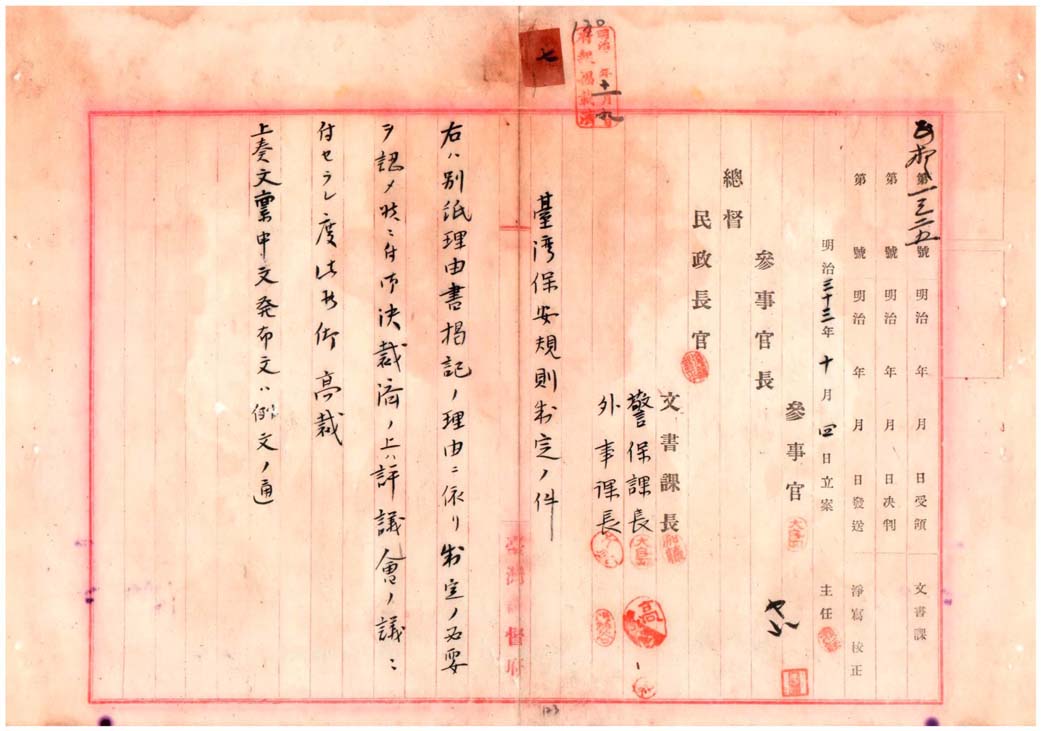 七
明治 年十一月九
府報掲載濟
第一三二五號 明治 年 月 日受領 文書課
第 號 明治 年 月 日決判
第 號 明治 年 月 日發送 淨寫 校正
明治三十三年十月四日立案 主任
參事官
參事官長
總督
民政長官
文書課長
警保課長
外事課長
臺灣保安規則制定ノ件
右ハ別紙理由書掲記ノ理由ニ依リ制定ノ必要
ヲ認メ候ニ付御決裁濟ノ上ハ評議會ノ議ニ
付セラレ度此段仰高裁
上奏文稟申文発布文ハ例文ノ通
臺灣總督府
123